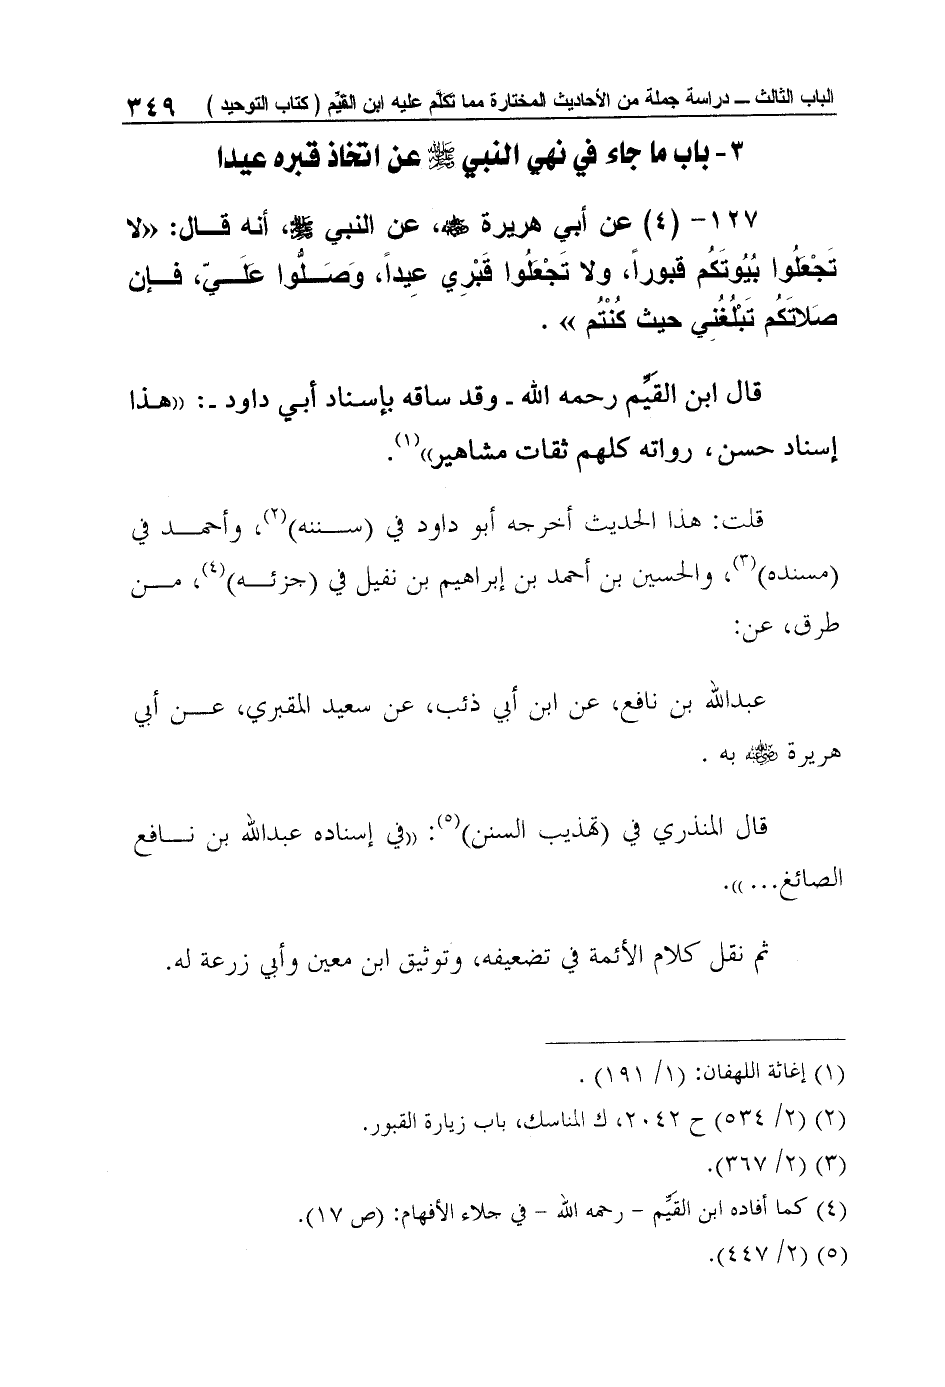 الباب الثالث ــ دراسة جملة من الأحاديث المختارة مما تكلَّم عليه ابن القيِّم ( كتاب التوحيد ) ٣٤٩
٣- باب ما جاء في نهي النبي ﷺ عن اتخاذ قبره عيدا
١٢٧- (٤) عن أبي هريرة ﷺ، عن النبي ﷺ، أنه قال: «لا
تَجْعَلُوا بُيُوتَكُم قبوراً، ولا تَجْعَلُوا قَبْرِي عِيداً، وَصَلُّوا عَلَيّ، فإن
صَلاتَكُم تَبْلُغُني حيث كُنْتُم » .
قال ابن القيِّم رحمه الله ـ وقد ساقه بإسناد أبي داود ـ: «هذا
إسناد حسن، رواته كلهم ثقات مشاهير»(١).
قلت: هذا الحديث أخرجه أبو داود في (سننه)(٢)، وأحمد في
(مسنده)(٣)، والحسين بن أحمد بن إبراهيم بن نفيل في (جزئه)(٤)، من
طرق، عن:
عبدالله بن نافع، عن ابن أبي ذئب، عن سعيد المقبري، عن أبي
هريرة رضي الله عنه به .
قال المنذري في (تهذيب السنن)(٥): «في إسناده عبدالله بن نافع
الصائغ... ».
ثم نقل كلام الأئمة في تضعيفه، وتوثيق ابن معين وأبي زرعة له.
(١) إغاثة اللهفان: (١/ ١٩١) .
(٢) (٢/ ٥٣٤) ح ٢٠٤٢، ك المناسك، باب زيارة القبور.
(٣) (٢/ ٣٦٧).
(٤) كما أفاده ابن القيِّم - رحمه الله - في جلاء الأفهام: (ص ١٧).
(٥) (٢/ ٤٤٧).